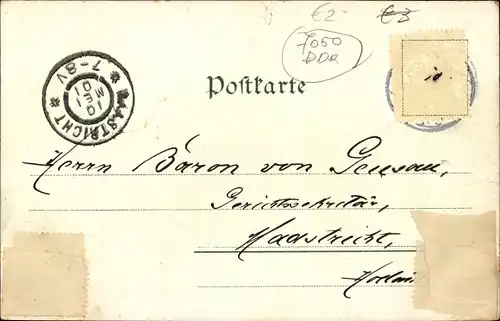 €2-
€3
7050
DDR
MAASTRICHT
7-8V
10
MEI
01
Postkarte
Herrn Baron von Geusau,
Gerichtssekretär,
Maastricht,